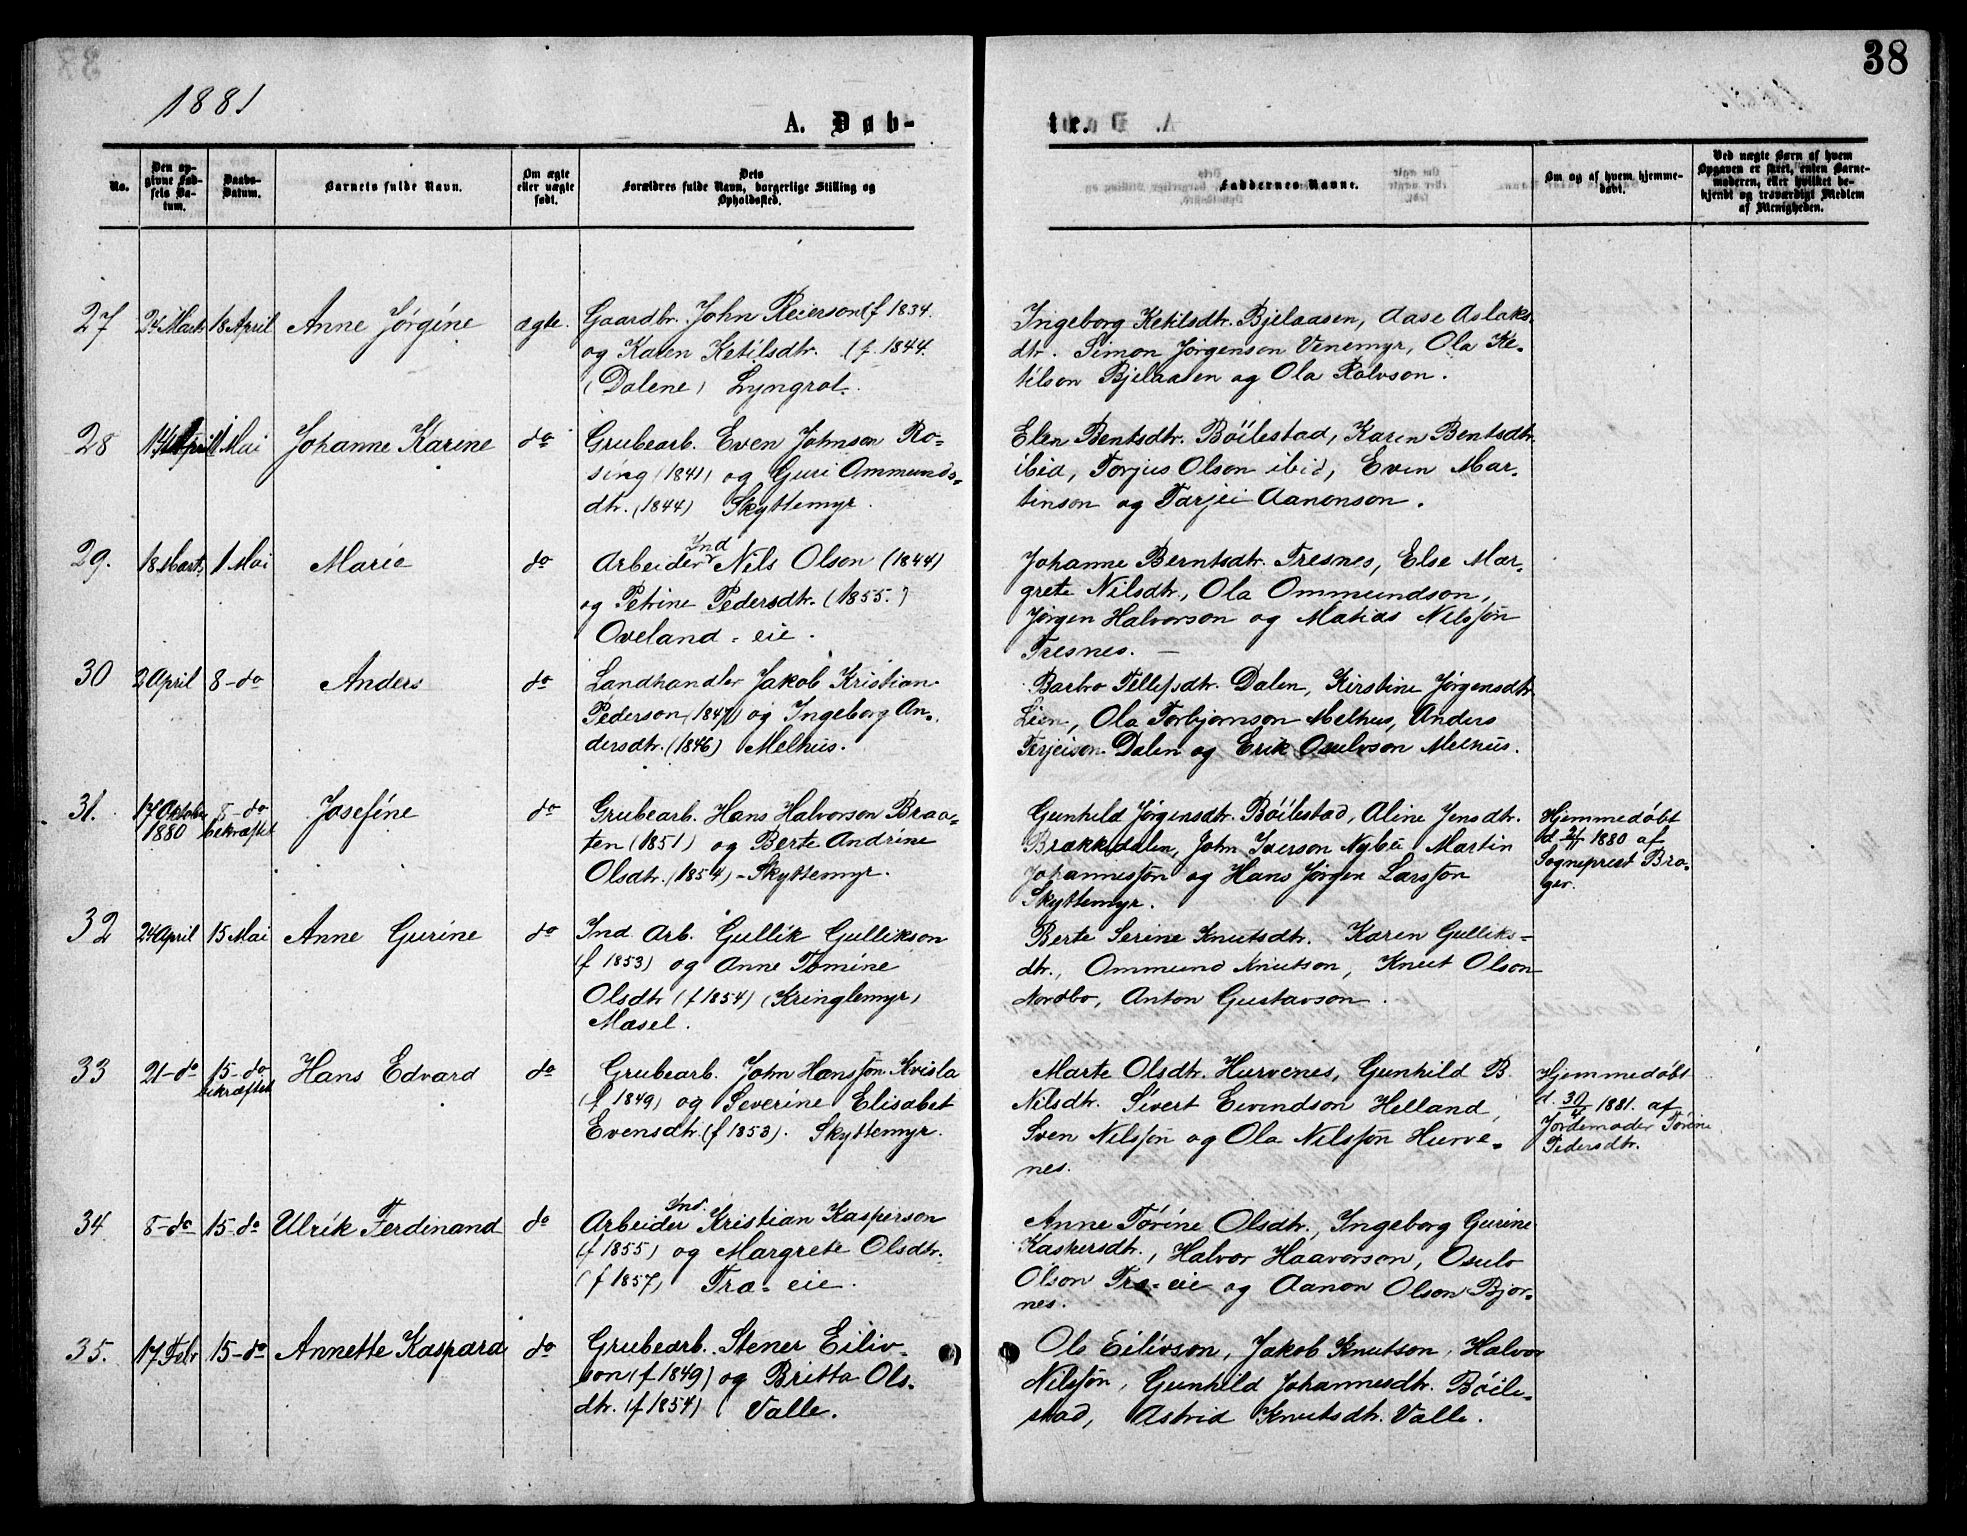 38
1881
A. Døb-
te.
No.
Den op-
givne Fød-
sels Da-
tum.
Daabs-
Datum.
Barnets fulde Navn.
Om ægte
eller uægte
født.
Dets
Forældres fulde Navn, borgerlige Stilling og
Opholdssted.
Faddernes Navne.
Om og af hvem hjemme-
døbt.
Ved uægte Børn af hvem
Opgaven er skeet, enten Barne-
moderen, eller hvilket be-
kjendt og troværdigt Medlem
af Menigheden.
27 24 Marts 18 April Anne Jørgine ægte.
Gaardbr. John Reierson (f 1834.
og Karen Ketilsdtr. (f. 1844.
(Dalene) Lyngrot.
Ingeborg Ketilsdtr. Bjelaasen, Aase Aslaks-
dtr. Simon Jørgenson Venemyr, Ola Ke-
tilson Bjelaasen og Ola Rolvson.
28 14 April 1 Mai Johanne Karine do
Grubearb. Even Johnson Ro-
sing (1841) og Guri Ommunds-
dtr. (1844) Skyttemyr.
Elen Bentsdtr. Böilestad, Karen Bentsdtr.
ibid, Torjus Olson ibid, Even Mar-
tinson og Tarjei Aanonson.
29. 18 Marts 1 Mai Marie do
Ind
Arbeider Nils Olson (1844)
og Petrine Pedersdtr. (1855.)
Oveland-eie.
Johanne Berntsdtr. Tresnes, Else Mar-
grete Nilsdtr., Ola Ommundson,
Jörgen Halvorson og Matias Nilsson
Tresnes. —
30 2 April 8-do Anders do
Landhandler Jakob Kristian
Pederson (1847) og Ingeborg An-
dersdtr. (1846) Melhus.
Barbro Tellefsdtr. Dalen, Kirstine Jørgensdtr.
Lien, Ola Torbjørnson Melhus, Anders
Terjeison Dalen og Erik Osulvson Melhus.
31. 17 Oktober 8-do Josefine do
1880 bekræftet
Grubearb. Hans Halvorson Braa-
ten (1851) og Berte Andrine
Olsdtr. (1854) - Skyttemyr.
Gunhild Jørgensdtr. Böilestad, Aline Jensdtr.
Brækkedalen, John Iverson Nybu Martin
Johannesson og Hans Jørgen Larsson
Skyttemyr.
Hjemmedöbt
d. 21/11 1880 af
Sogneprest Bra-
ger.
32 24 April 15 Mai Anne Gurine do
Ind. Arb. Gullik Gullikson
(f 1853) og Anne Tomine
Olsdtr (f 1854) (Kringlemyr)
Mæsel.
Berte Serine Knutsdtr. Karen Gulliks-
dtr., Ommund Knutson, Knut Olson
Nordbø, Anton Gustavson.
33 21-do 15-do Hans Edvard do
bekræftet
Grubearb. John Hansson Kvisla
(f 1849) og Severine Elisabet
Evensdtr. (f 1853). Skyttemyr.
Marte Olsdtr. Hurvenes, Gunhild B.
Nilsdtr. Sivert Eivindson Helland,
Sven Nilsson og Ola Nilsson Hurve-
nes.
Hjemmedöbt
d. 30/4 1881. af
Jordemoder Törine
Pedersdtr.
34 8-do 15-do Ulrik Ferdinand do
Ind.
Arbeider Kristian Kasperson
(f 1855) og Margrete Olsdtr.
(f 1857) Træ-eie.
Anne Törine Olsdtr., Ingeborg Gurine
Kaspersdtr., Halvor Haavorson, Osulv
Olson Træ-eie og Aanon Olson Bjor-
nes.
35. 17 Febr 15-do Annette Kaspara do
Grubearb. Stener Eiliv-
son (f 1849) og Britta Ols-
dtr. (f 1854) ( Valle.
Ola Eilivson, Jakob Knutson, Halvor
Nilsson, Gunhild Johannesdtr. Böile-
stad, Astrid Knutsdtr. Valle.